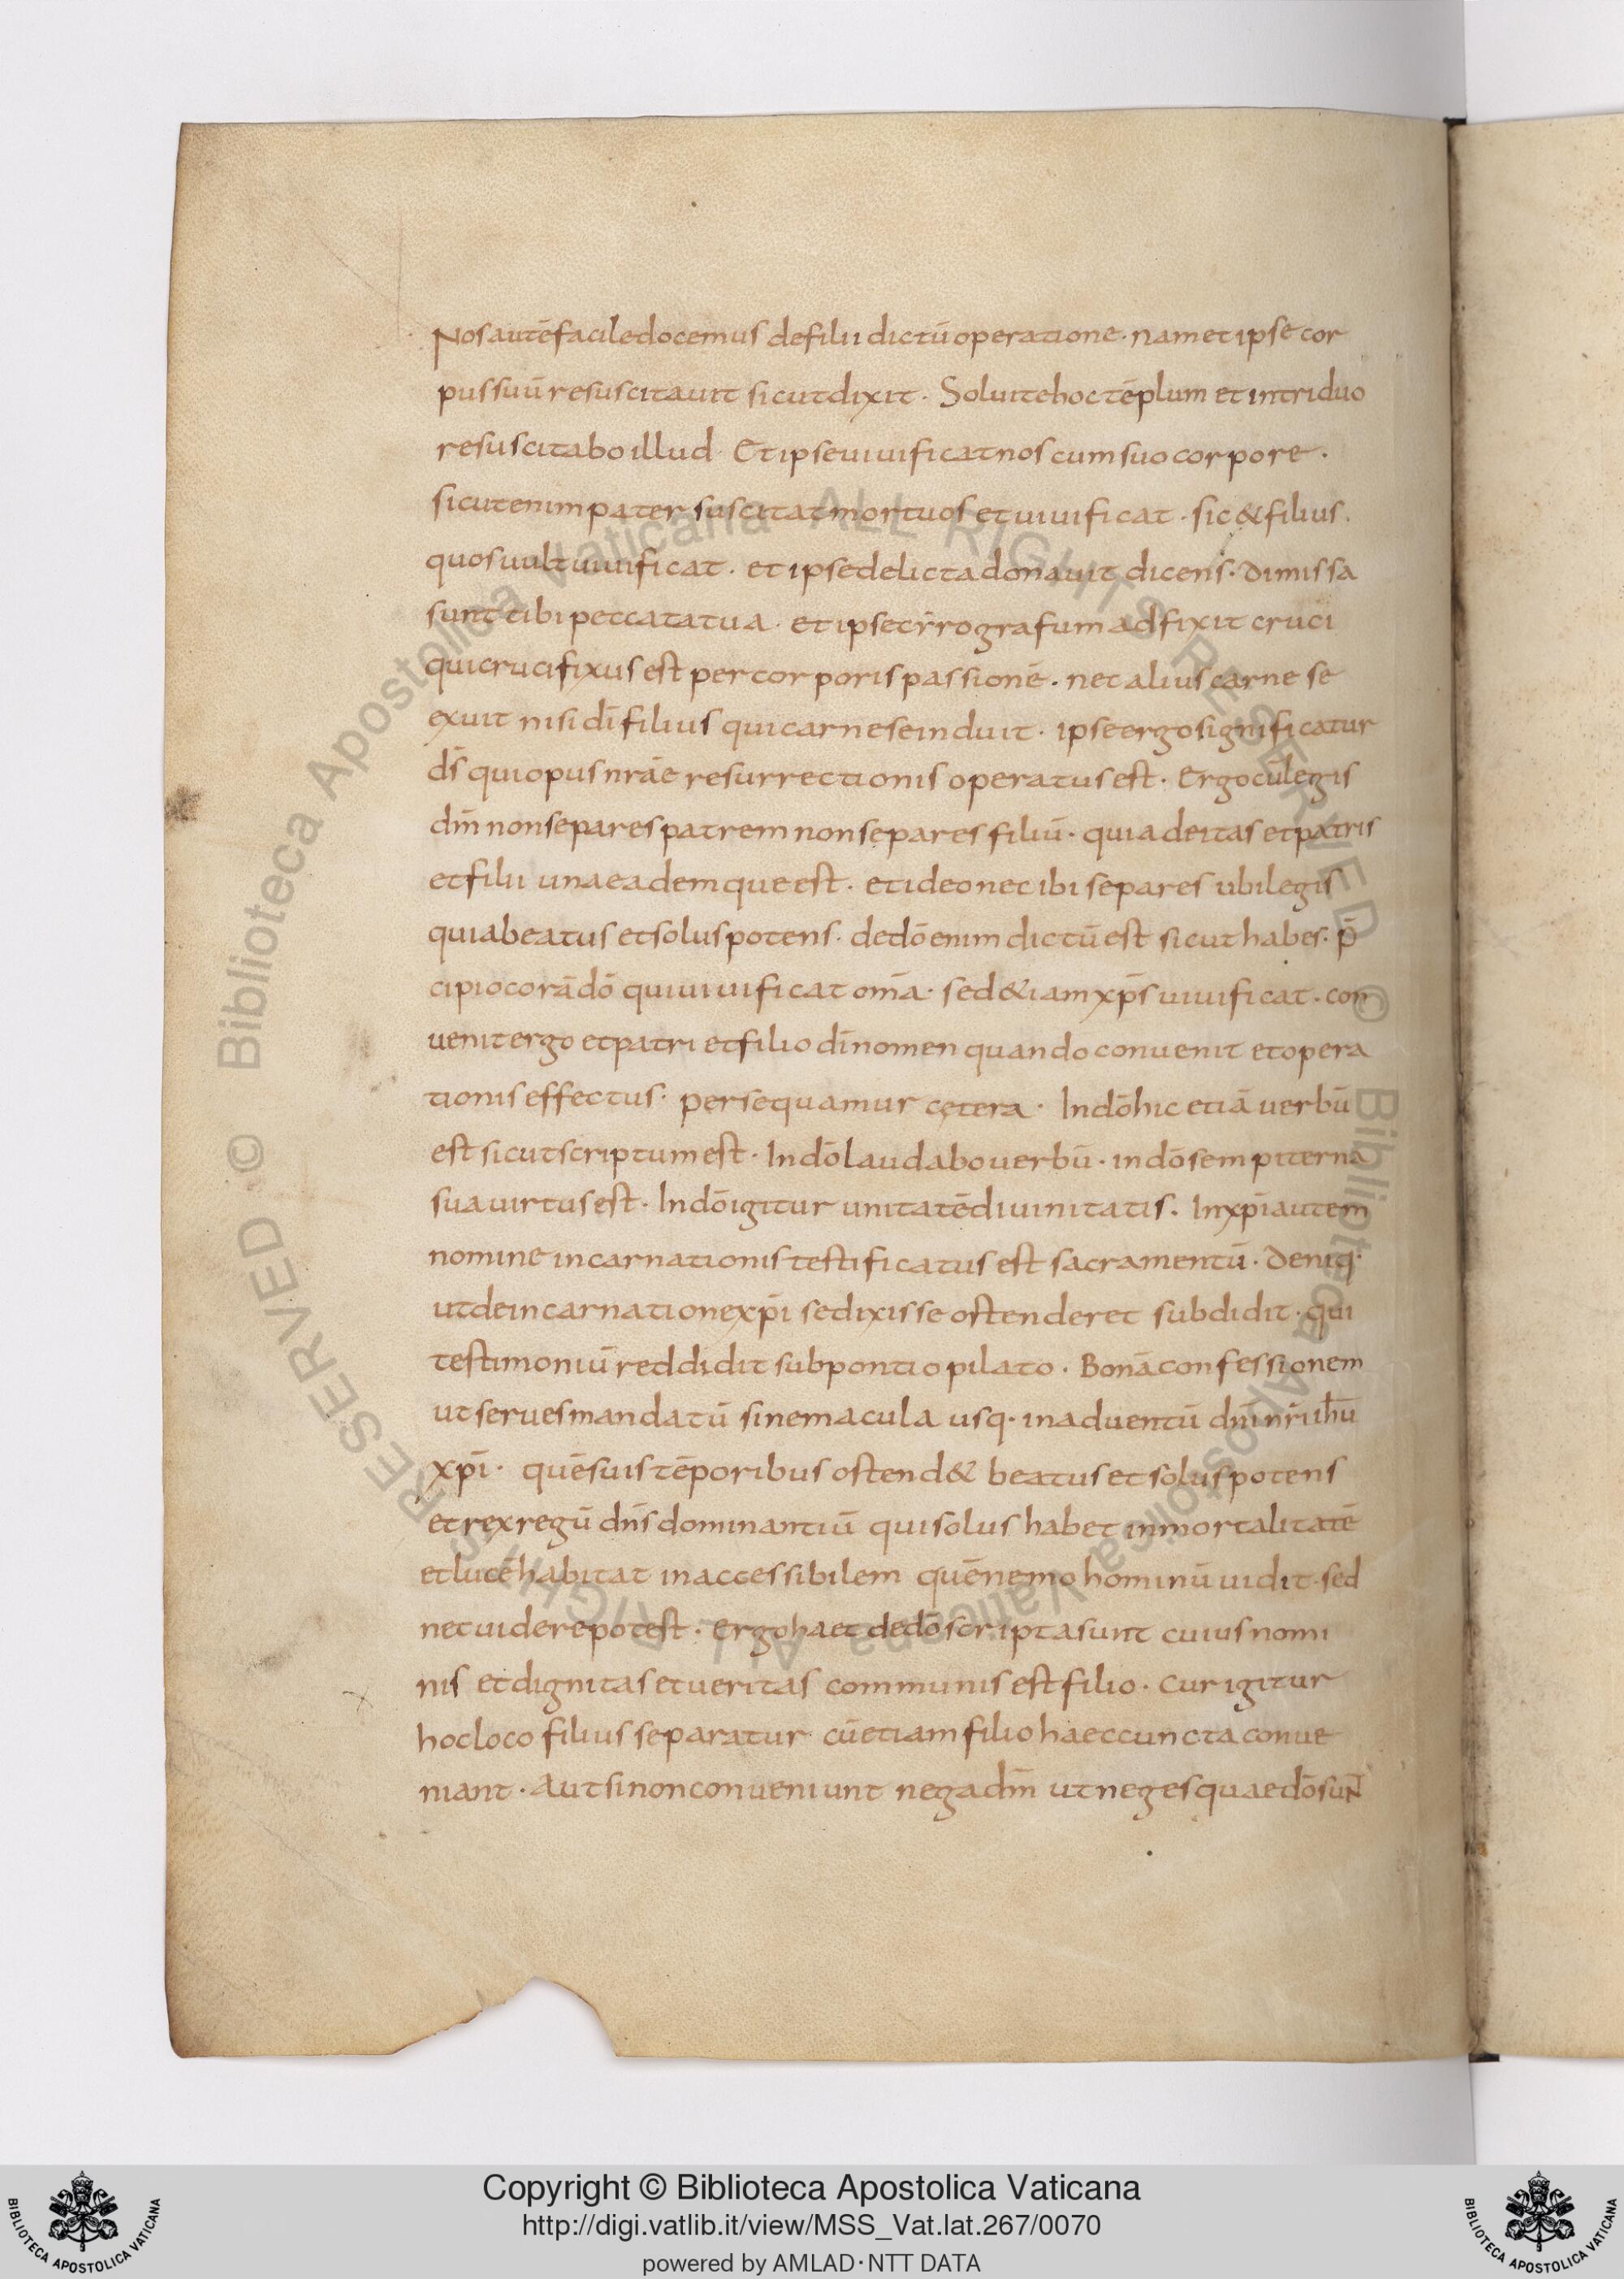 Nos autē facile docemus de filii dictū operatione · nam et ipse cor
pus suū resuscitauit sicut dixit · Soluite hoc tēplum et in triduo
resuscitabo illud · Et ipse uiuificat nos cum suo corpore ·
sicut enim pater suscitat mortuos et uiuificat · sic & filius
quos uult uiuificat · et ipse delicta donauit dicens · dimissa
sunt tibi peccata tua · et ipse cyrografum adfixit cruci
qui crucifixus est per corporis passionē · nec alius carne se
exuit nisi dī filius qui carne se induit · ipse ergo significatur
d̄s qui opus nrāe resurrectionis operatus est · Ergo cū legis
dm̄ non separes patrem non separes filiū · quia deitas et patris
et filii una eademque est · et ideo nec ibi separes ubi legis
quia beatus et solus potens · de dō enim dictū est sicut habes · p̄
cipio corā dō qui uiuificat om̄a · sed &iam xp̄s uiuificat · con
uenit ergo et patri et filio dī nomen quando conuenit et opera
tionis effectus · persequamur cetera · In dō hic etiā uerbū
est sicut scriptum est · In dō laudabo uerbū · in dō sempiterna
sua uirtus est · In dō igitur unitatē diuinitatis · In xp̄i autem
nomine incarnationis testificatus est sacramentū · deniq·
ut de incarnatione xp̄i se dixisse ostenderet subdidit · qui
testimoniū reddidit sub pontio pilato · Bonā confessionem
ut serues mandatū sine macula usq· in aduentū dn̄i nr̄i ih̄u
xp̄i · quē suis tēporibus ostend& beatus et solus potens
et rex regū dn̄s dominantiū qui solus habet inmortalitatē
et lucē habitat inaccessibilem quē nemo hominū uidit · sed
nec uidere potest · Ergo haec de dō scripta sunt cuius nomi
nis et dignitas et ueritas communis est filio · Cur igitur
hoc loco filius separatur · cū etiam filio haec cuncta conue
niant · Aut si non conueniunt nega dm̄ ut neges quae dō sunt
Copyright © Biblioteca Apostolica Vaticana
http://digi.vatlib.it/view/MSS_Vat.lat.267/0070
powered by AMLAD·NTT DATA
BIBLIOTECA APOSTOLICA VATICANA
BIBLIOTECA APOSTOLICA VATICANA
© Biblioteca Apostolica Vaticana ALL RIGHTS RESERVED © Biblioteca Apostolica Vaticana ALL RIGHTS RESERVED